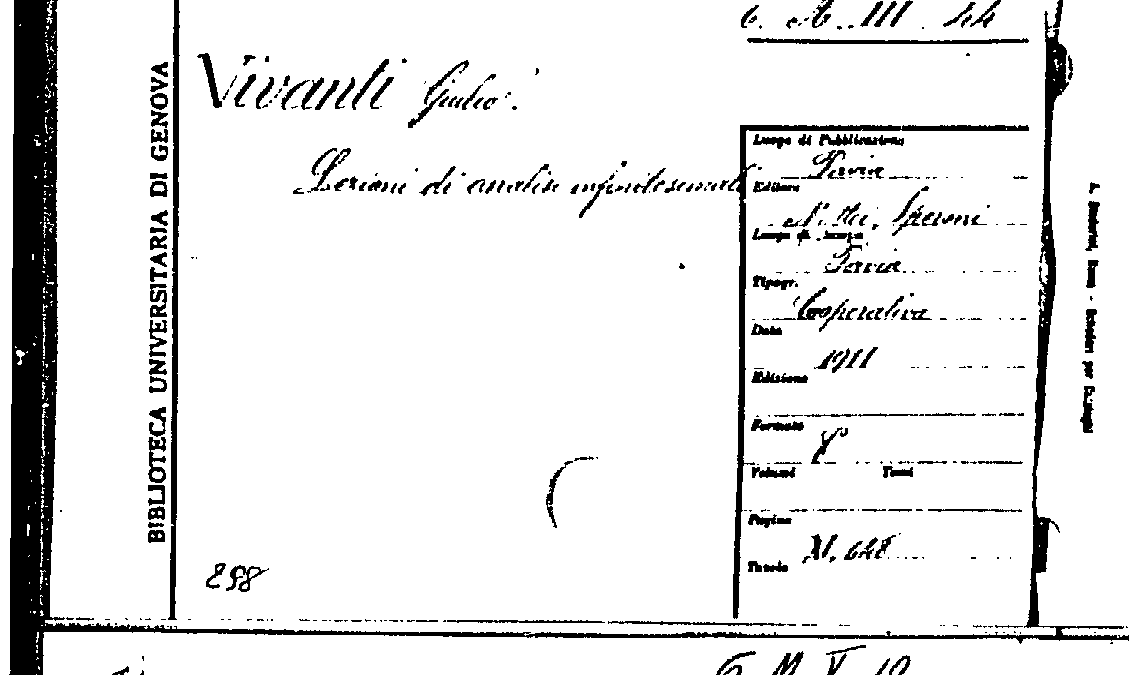 6. A. III. 44
BIBLIOTECA UNIVERSITARIA DI GENOVA
Vivanti Giulio.
Lezioni di analisi infinitesimale
Luogo di Pubblicazione
Pavia
Editore
Mattei, Speroni
Luogo di stampa
Pavia
Tipogr.
Cooperativa
Data
1911
Edizione
Formato
8°
Volumi Tomi
Pagine
XI, 648
Tavole
898
6 M V 10